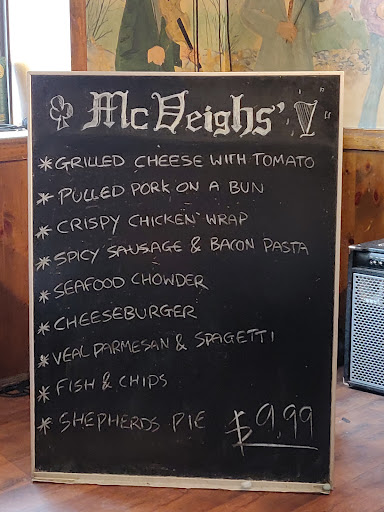 McVeighs'
* GRILLED CHEESE WITH TOMATO
* PULLED PORK ON A BUN
* CRISPY CHICKEN WRAP
* SPICY SAUSAGE & BACON PASTA
* SEAFOOD CHOWDER
* CHEESEBURGER
* VEAL PARMESAN & SPAGETTI
* FISH & CHIPS
* SHEPHERDS PIE $9.99